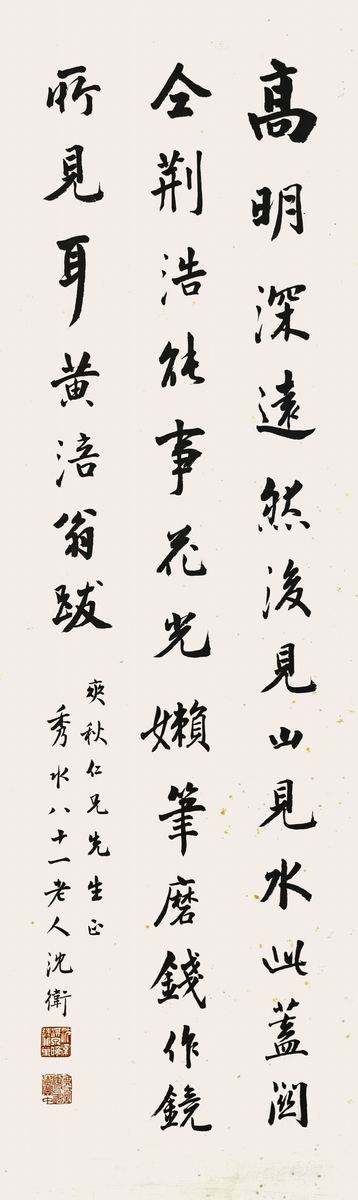 高明深遠然後見山見水此蓋關
仝荆浩能事花光嬾筆磨錢作鏡
所見耳黄涪翁跋
爽秋仁兄先生正
秀水八十一老人沈衛